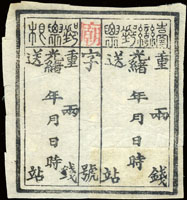 臺灣郵票
重 兩 錢
年 月 日 時
送 站
字 號
郵票根
重 兩 錢
年 月 日 時
送 站